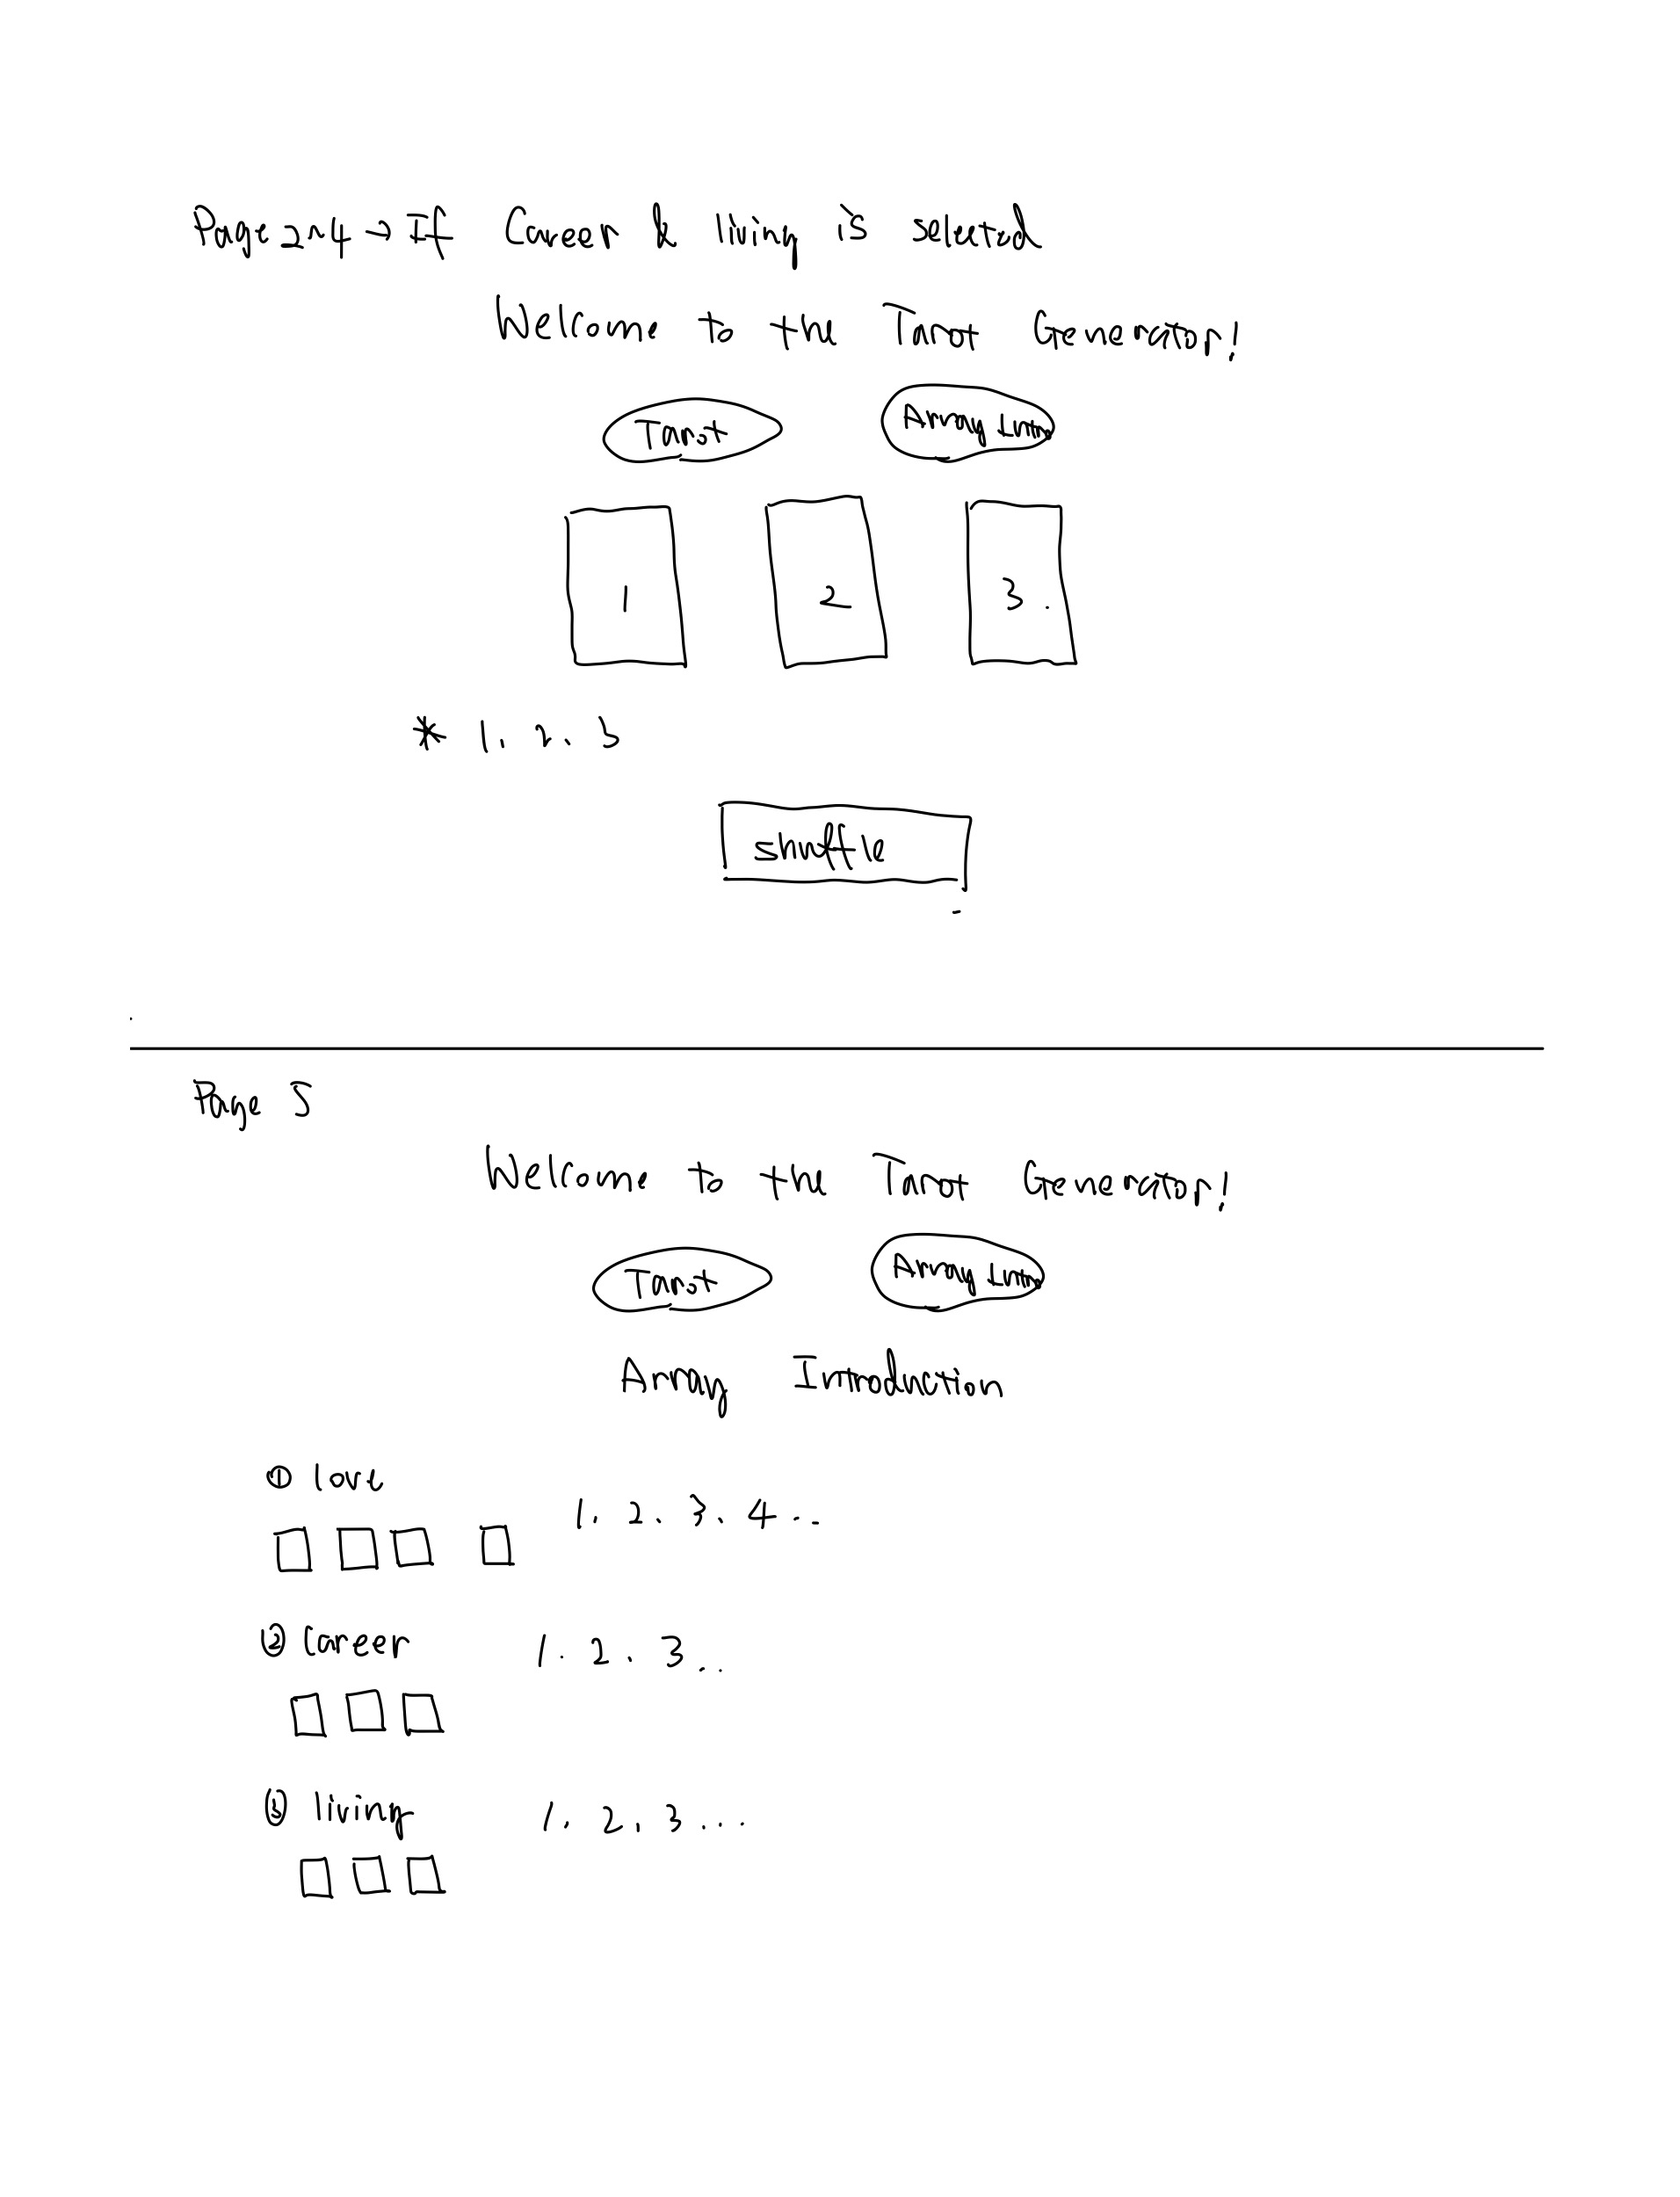 Page 2~4 → If Career & living is selected
Welcome to the Tarot Generator!
Tarot Array Intro
1 2 3.
* 1. 2. 3
shuffle
Page 5
Welcome to the Tarot Generator!
Tarot Array Intro
Array Introduction
① love
1. 2. 3. 4...
② Career 1. 2. 3...
③ living 1. 2. 3...